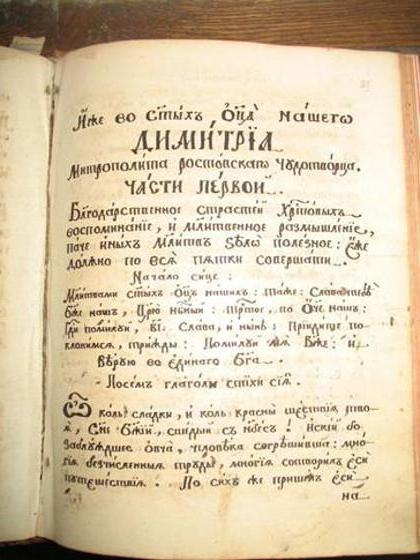 И҆́же во ст҃ы́хъ ѻ҆ц҃а̀ на́шегѡ
ДИМИ́ТРЇА
Митрополи́та ростовскагѡ чудотво́рца.
ЧАСТИ ПЕ́РВОИ.
Благода́рственное страсте́й Хрⷭ҇то́выхъ
воспомина́нїе, и҆ мл҃и́твенное размышле́нїе,
па́че и҆ны́хъ мл҃и́твъ ѕѣлѡ̀ поле́зное: є҆́же
до́лжно по всѧ̑ пѧтки̑ соверша́ти.
Нача́ло си́це:
Мл҃и́твами ст҃ы́хъ ѻ҆ц҃ъ на́шихъ: та́же: Сла́ва тебѣ̀
бж҃е на́шъ, Цр҃ю̀ нбⷭ҇ный: трⷭ҇то́е, по Ѻ҆́ч҃е на́шъ:
Гдⷭ҇и поми́луй, в҃і. Сла́ва, и҆ ны́нѣ: Прїиди́те по-
клони́мсѧ, три́жды: Поми́луй мѧ̀ Бж҃е: и҆
Вѣ́рую во є҆ди́наго Бг҃а.
Посе́мъ глаго́лы стїхѝ сїѧ̑.
Ѽ ко́ль сла́дки, и҆ ко́ль кра́сны ше́ствїѧ тво-
ѧ̑, Сн҃е Бж҃їй, сше́дый съ нб҃съ! И҆ска́й бо
заблу́ждшее овча̀, человѣ́ка согрѣши́вша: мнѡ-
гїѧ безчи́сленныѧ трꙋды̀, мнѡ́гїѧ сотвори́лъ є҆сѝ
путеше́ствїѧ. По си́хъ же прише́лъ є҆сѝ
на